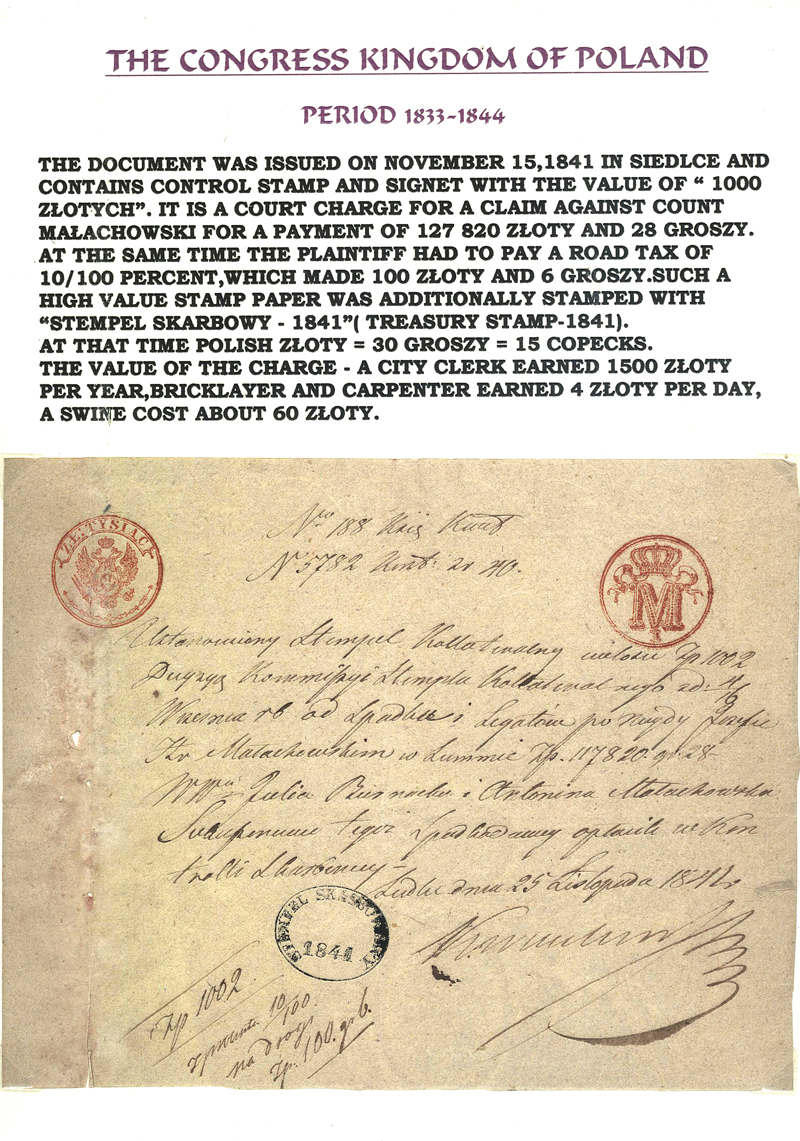 THE CONGRESS KINGDOM OF POLAND
PERIOD 1833-1844
THE DOCUMENT WAS ISSUED ON NOVEMBER 15,1841 IN SIEDLCE AND
CONTAINS CONTROL STAMP AND SIGNET WITH THE VALUE OF “ 1000
ZŁOTYCH”. IT IS A COURT CHARGE FOR A CLAIM AGAINST COUNT
MAŁACHOWSKI FOR A PAYMENT OF 127 820 ZŁOTY AND 28 GROSZY.
AT THE SAME TIME THE PLAINTIFF HAD TO PAY A ROAD TAX OF
10/100 PERCENT,WHICH MADE 100 ZŁOTY AND 6 GROSZY.SUCH A
HIGH VALUE STAMP PAPER WAS ADDITIONALLY STAMPED WITH
“STEMPEL SKARBOWY - 1841”( TREASURY STAMP-1841).
AT THAT TIME POLISH ZŁOTY = 30 GROSZY = 15 COPECKS.
THE VALUE OF THE CHARGE - A CITY CLERK EARNED 1500 ZŁOTY
PER YEAR,BRICKLAYER AND CARPENTER EARNED 4 ZŁOTY PER DAY,
A SWINE COST ABOUT 60 ZŁOTY.
ZŁ: TYSIĄC
No 188
N 3782 40.
M
Ustanowiony Stempel Kollateralny Zp 1002
Stempla
Września rb od Spadku i Legatów po Józefie
Hr Małachowskim w Summie Zp. 117820. gr. 28
Julia i Antonina Małachowska
tegoż Spadkodawcy opłacili w Kon
trolli Skarbowey
dnia 25 Listopada 1841 r
STEMPEL SKARBOWY
1841
Zp 1002
10/100
na drogi
Zp. 100. gr 6.